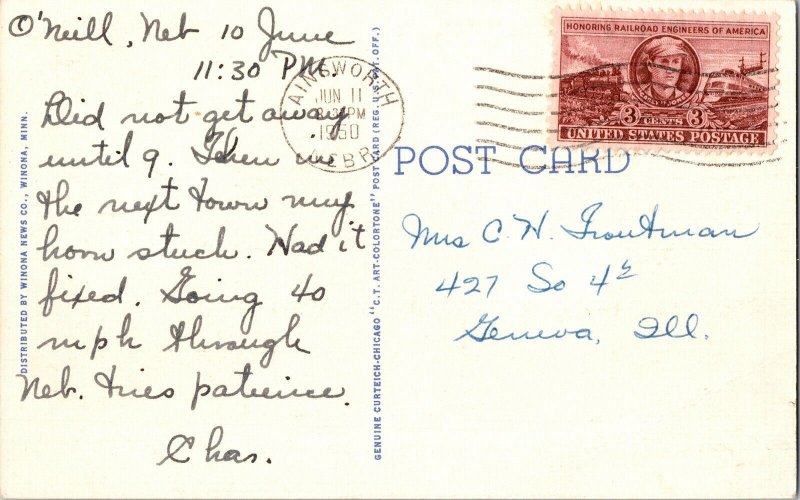 O'Neill, Neb 10 June
11:30 PM.
Did not get away
until 9. Then in
the next town my
horn stuck. Had it
fixed. Going 40
mph through
Neb. tries patience.
Chas.
DISTRIBUTED BY WINONA NEWS CO., WINONA, MINN.
GENUINE CURTEICH-CHICAGO "C.T. ART-COLORTONE" POST CARD (REG. U.S. PAT. OFF.)
AINSWORTH
JUN 11
PM
1950
NEBR.
HONORING RAILROAD ENGINEERS OF AMERICA
3 CENTS 3
UNITED STATES POSTAGE
POST CARD
Mrs C. H. Troutman
427 So 4th
Geneva, Ill.